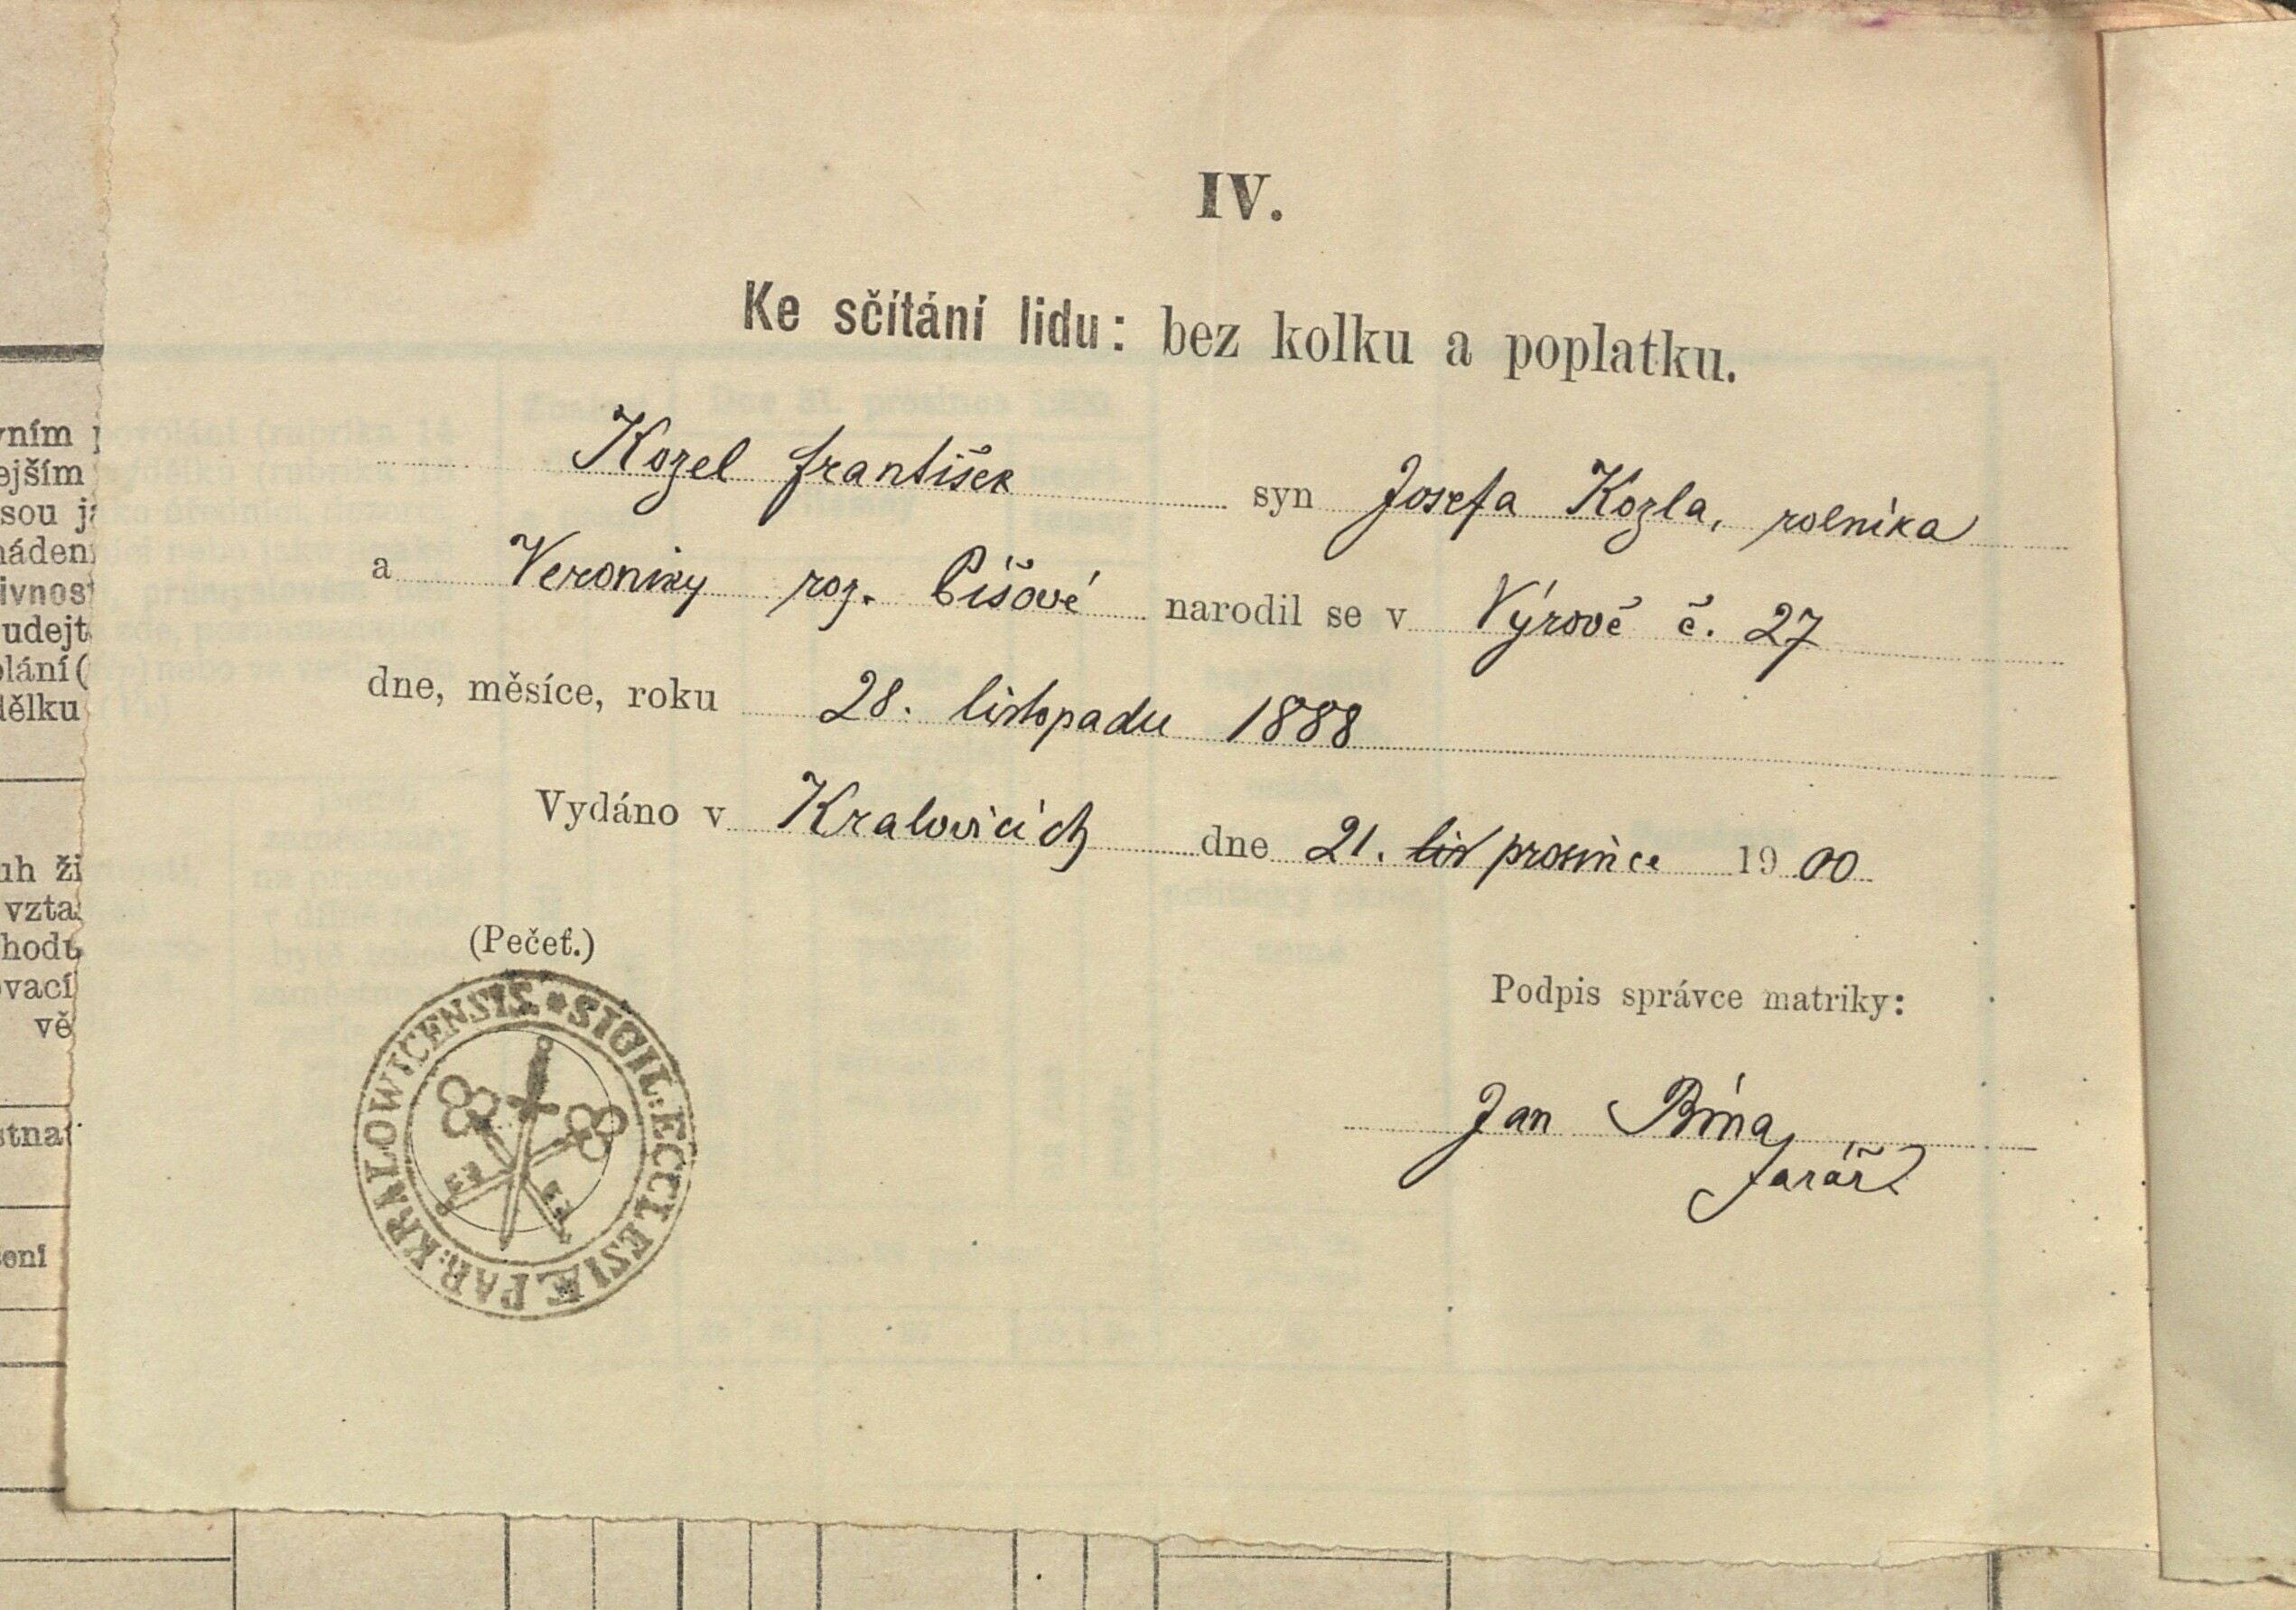 IV.
Ke sčítání lidu: bez kolku a poplatku.
Kozel František syn Josefa Kozla, rolníka
a Veroniky roz. Píšové narodil se v Výrově č. 27
dne, měsíce, roku 28. listopadu 1888
Vydáno v Kralovicích dne 21. lis prosince 1900
(Pečeť.)
SIGIL: ECCLESIÆ PAR: KRALOWICENSIS
Podpis správce matriky:
Jan Bína
farář
vním
ejším
sou
ivnos
udejt
lání (
ělku
uh ži
vzta
hodu
ovací
vě
stna
ení